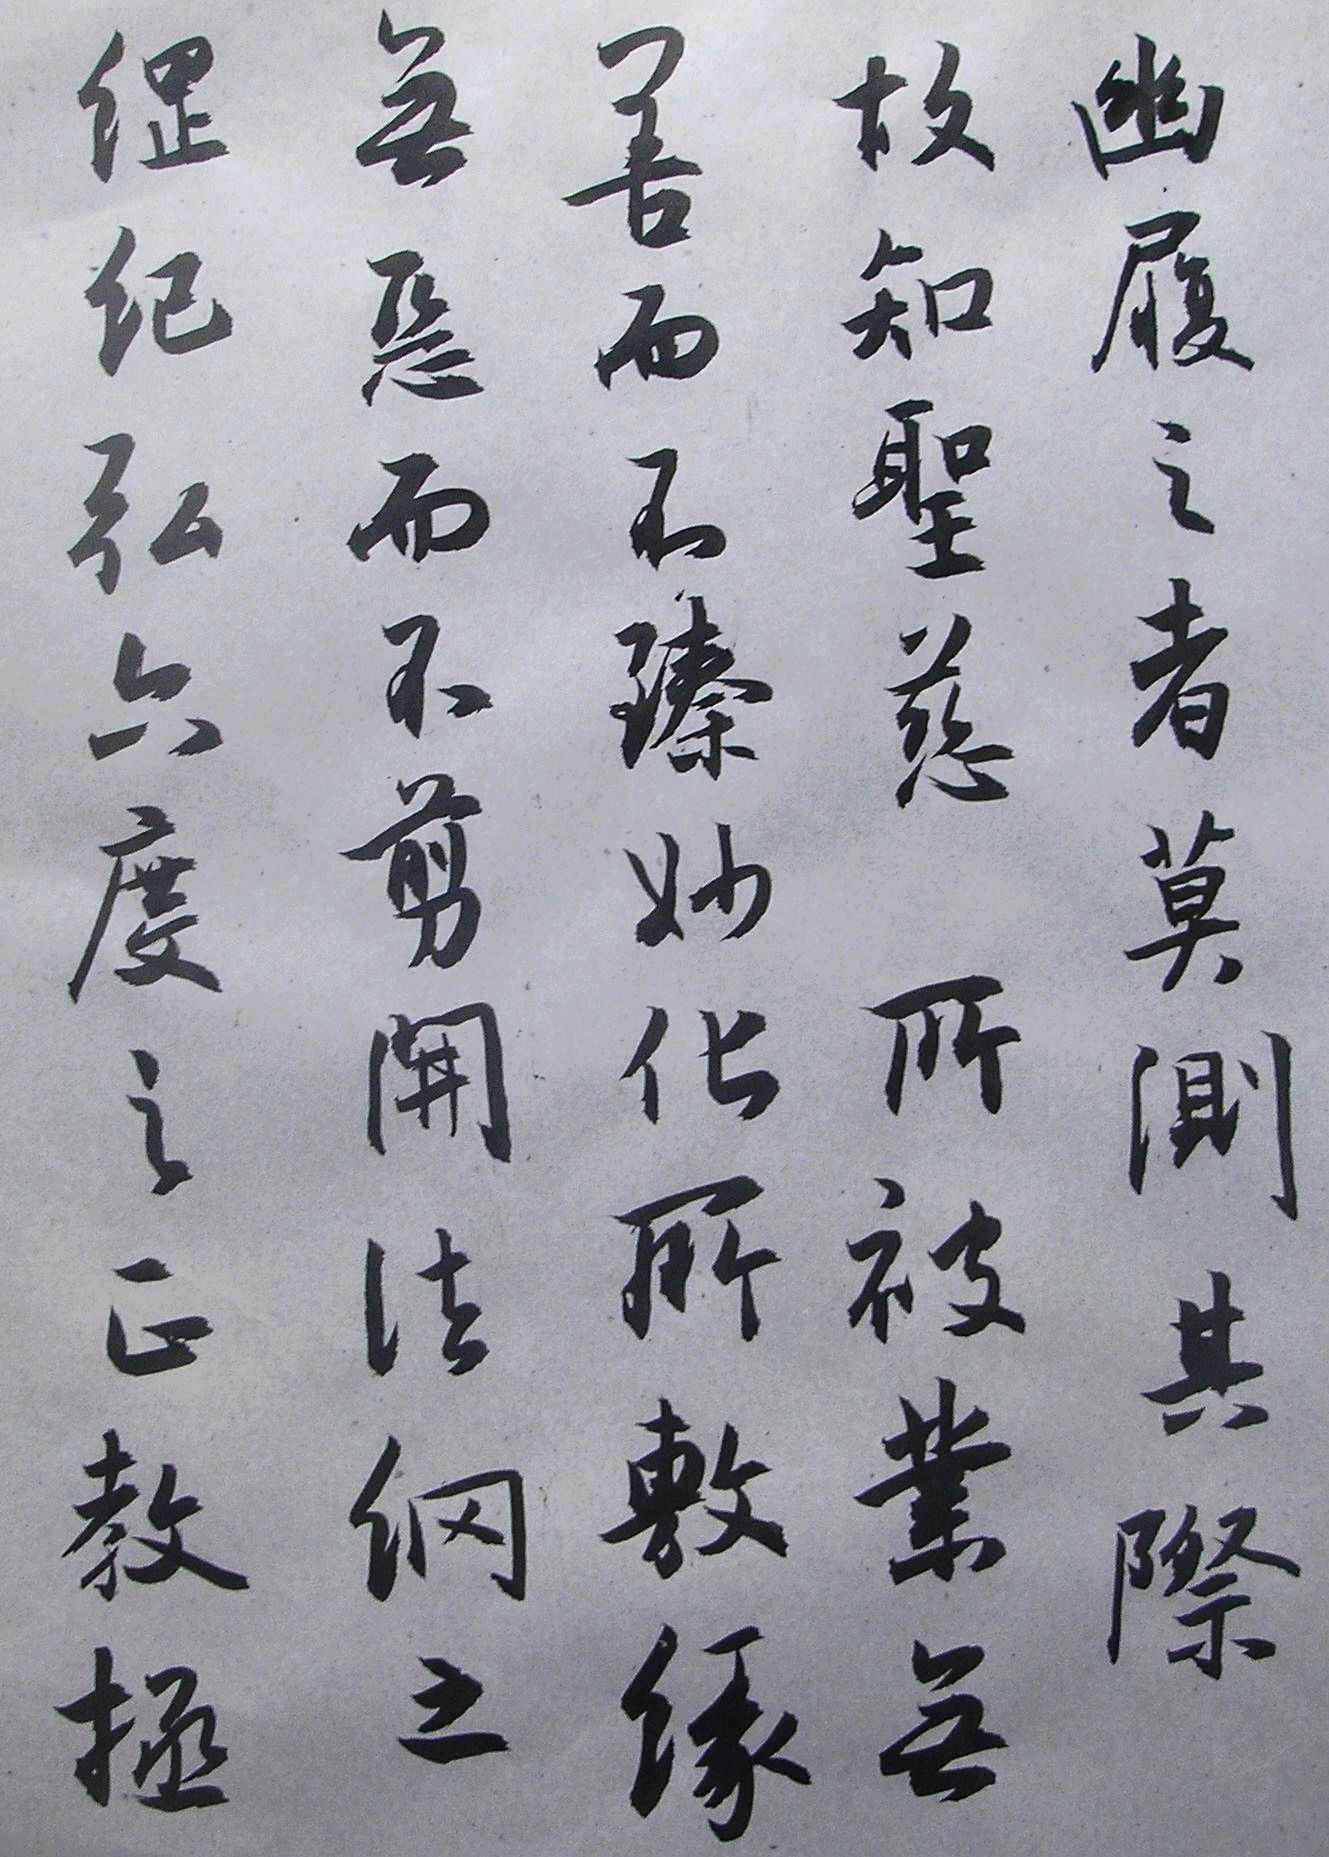 幽履之者莫測其際
故知聖慈所被業無
善而不臻妙化所敷緣
無惡而不剪開法網之
綱紀弘六度之正教拯